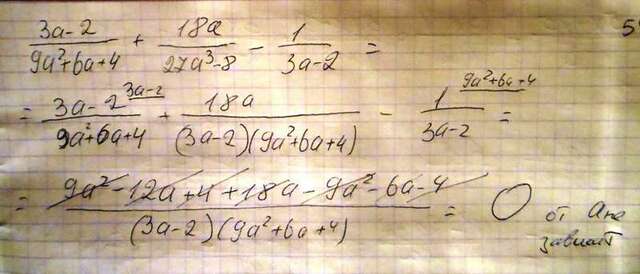 (3a-2)/(9a²+6a+4) + 18a/(27a³-8) - 1/(3a-2) = 5
= (3a-2)/(9a²+6a+4) 3a-2 + 18a/((3a-2)(9a²+6a+4)) - 1/(3a-2) 9a²+6a+4 =
= (9a²-12a+4+18a-9a²-6a-4)/((3a-2)(9a²+6a+4)) = 0 от а не
зависит